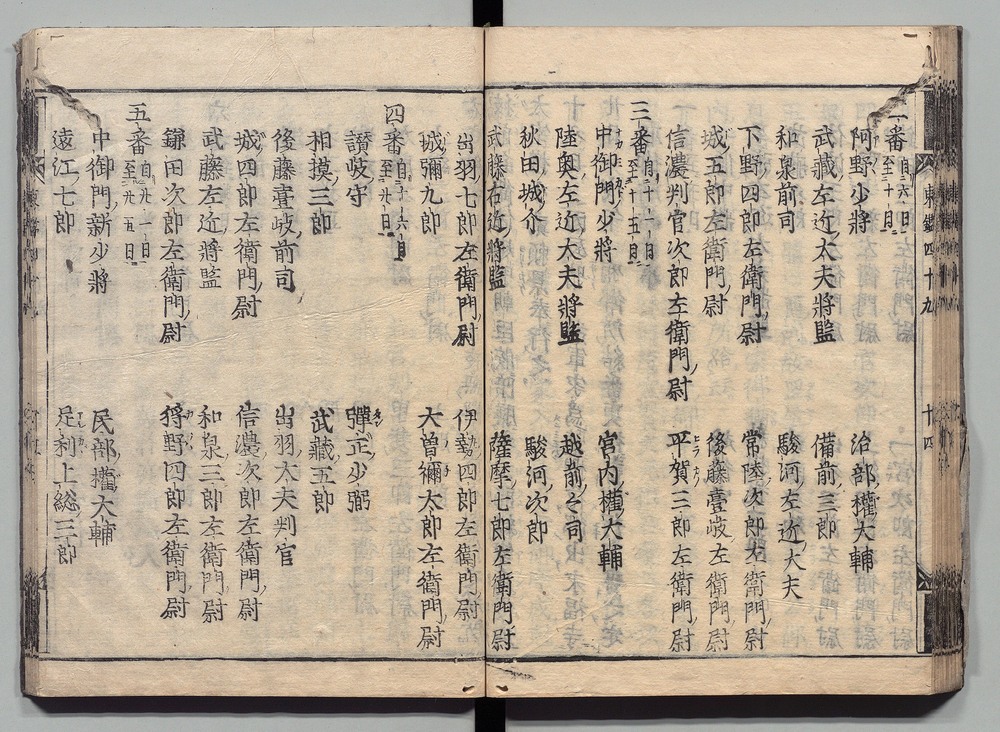 二番 自六日至十日
阿野少將 治部權大輔
武藏左近太夫將監 備前三郎
和泉前司 駿河左近大夫
下野四郎左衛門尉 常陸次郎左衛門尉
城五郎左衛門尉 後藤壹岐左衛門尉
信濃判官次郎左衛門尉 平賀三郎左衛門尉
三番 自十一日至十五日
中御門少將 宮内權大輔
陸奥左近大夫將監 越前々司
秋田城介 駿河次郎
武藤右近將監 薩摩七郎左衛門尉
出羽七郎左衛門尉 伊勢四郎左衛門尉
城彌九郎 大曽禰太郎左衛門尉
四番 自十六日至廿日
讃岐守 彈正少弼
相摸三郎 武藏五郎
後藤壹岐前司 出羽太夫判官
城四郎左衛門尉 信濃次郎左衛門尉
武藤左近將監 和泉三郎左衛門尉
鎌田次郎左衛門尉 狩野四郎左衛門尉
五番 自廿一日至廿五日
中御門新少將 民部權大輔
遠江七郎 足利上総三郎
東鑑四十九 十四